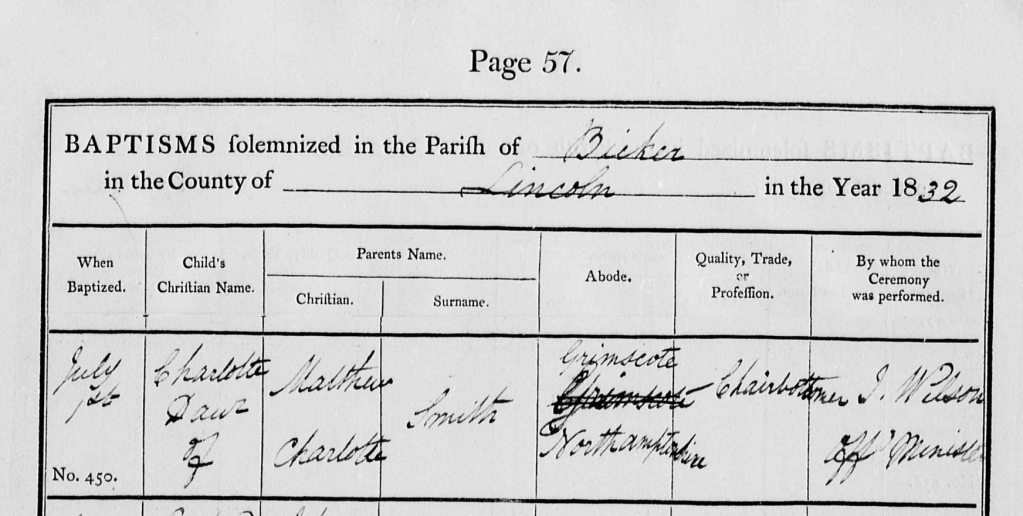 Page 57.
BAPTISMS ſolemnized in the Pariſh of Bicker
in the County of Lincoln in the Year 1832
When
Baptized.
Child's
Chriſtian Name.
Parents Name.
Chriſtian.
Surname.
Abode.
Quality, Trade,
or
Profeſſion.
By whom the
Ceremony
was performed.
July
1st
No. 450.
Charlotte
Daur
of
Matthew
Charlotte
Smith
Grimscote
Grimscote
Northamptonshire
Chairbottomer
J. Wilson
Offg Minister